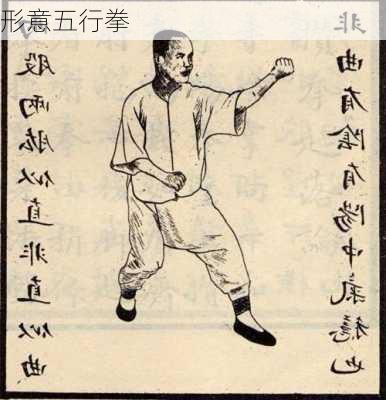 形意五行拳
股兩肱似直非直似曲
非曲有陰有陽中氣穩也